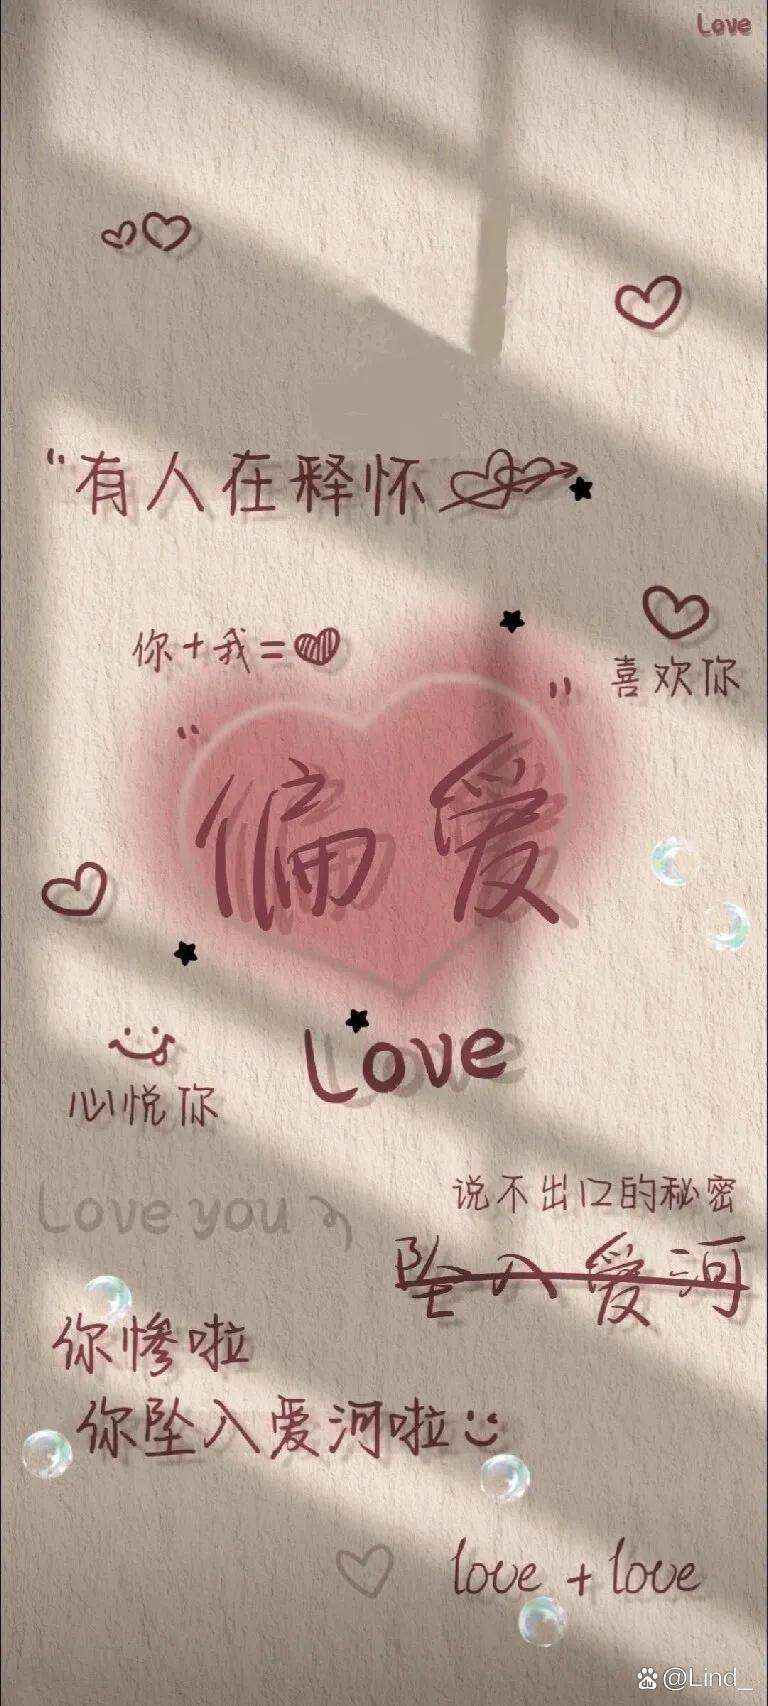 Love
"有人在释怀
你+我=
喜欢你
"偏爱"
Love
心悦你
说不出口的秘密
Love you
坠入爱河
你惨啦
你坠入爱河啦
love + love
@Lind_